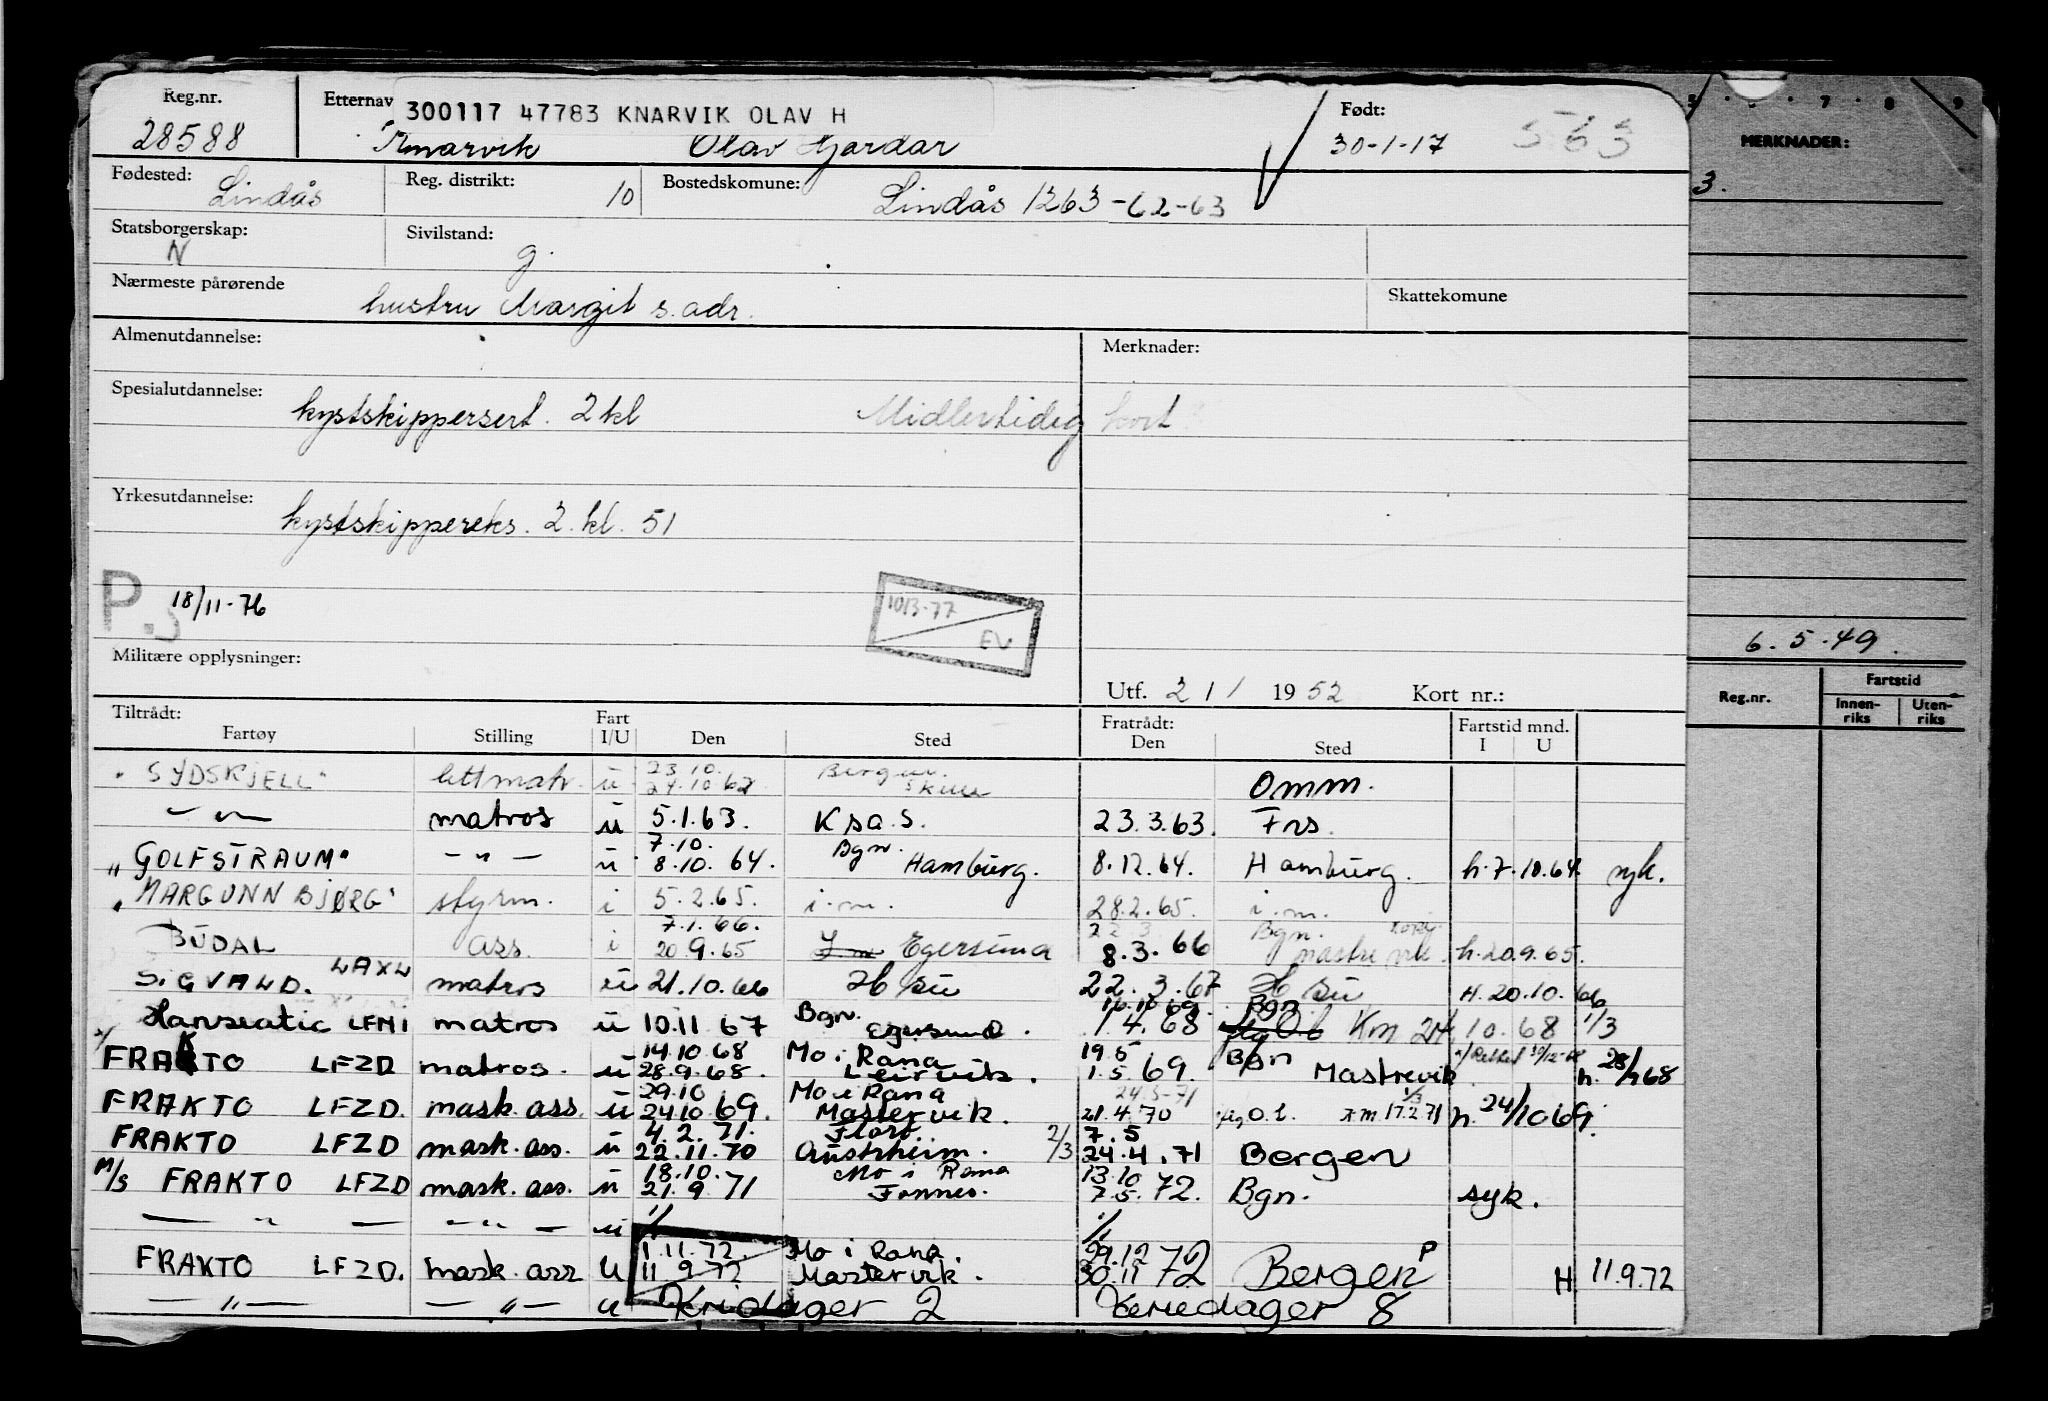 Reg.nr. Etternav 300117 47783 KNARVIK OLAV H Født:
28588 Knarvik Olav Gardar 30-1-17 563
Fødested: Lindås Reg. distrikt: 10 Bostedskomune: Lindås 1263-62-63
Statsborgerskap: N Sivilstand: g.
Nærmeste pårørende hustru Margit s. adr. Skattekomune
Almenutdannelse: Merknader:
Spesialutdannelse: kystskippersert. 2 kl Midlertidig kort
Yrkesutdannelse: kystskippereks. 2. kl. 51
P. 18/11-76
1013-77 EV
Militære opplysninger:
Utf. 2 / 1 1952 Kort nr.:
Tiltrådt: Fart Fratrådt: Fartstid mnd.
Fartøy Stilling I/U Den Sted Den Sted I U
23.10. Bergen.
"SYDSKJELL" lettmatr. u 24.10.62 Omm.
— " — matros u 5.1.63. K sa. S. 23.3.63. Frs.
7.10. Bgn.
"GOLFSTRAUM" — " — u 8.10.64. Hamburg. 8.12.64. Hamburg. h.7.10.64. syk.
"MARGUNN BJØRG" styrm. i 5.2.65. i.m. 28.2.65. i.m.
7.1.66. 22.3. Bgn.
BUDAL ass. i 20.9.65 Egersund 8.3.66 h.20.9.65.
SIGVALD. LAXW matros u 21.10.66 H su 22.3.67 H su H.20.10.66
Bgn. 16.10.69. Bgn
Hanseatic LFMI matros u 10.11 67 Egersund. 1.4.68 Km 24/10.68 1/3
14.10 68 Mo i Rana 19.5 Bgn
FRAKTO LFZD matros. u 28.9.68. Leirvik. 1.5.69. Mastrevik h. 28/9 68
29.10 Mo i Rana 24.5-71
FRAKTO LFZD. mask. ass. u 24.10 69. Mastervik. 21.4.70 17.2.71 h. 24/10 69.
4.2.71. Florø 7.5
FRAKTO LFZD mask. ass. u 22.11.70 Austrheim. 2/3 24.4.71 Bergen
18.10. Mo i Rana 13.10
M/S FRAKTO LFZD mask. ass. u 21.9.71 Fonnes. 7.5.72. Bgn. syk.
— " — — " — u
1.11.72. Mo i Rana. 29.12
FRAKTO LFZD. mask. ass U 11 9 72 Mastervik. 30.11 72 Bergen P H 11.9.72
— " — — " — u Kridager 2 Keriedager 8
7 8 9
MERKNADER:
3.
6.5.49.
Reg.nr. Fartstid
Innen-riks Uten-riks